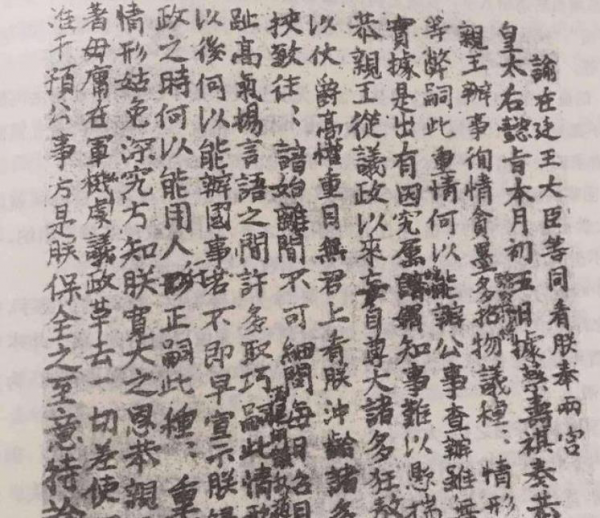 諭在廷王大臣等同看朕奉兩宮
皇太后懿旨本月初五日據蔡壽祺奏恭
親王辦事徇情貪墨多招物議種〻情形
等弊嗣此重情何以能辦公事查辦雖無
實據是出有因究屬曖昧知事難以懸揣
恭親王從議政以來妄自尊大諸多狂敖
以仗爵高權重目無君上看朕沖齡諸多
挾致往〻諳始離間不可細問每日召見
趾高氣揚言語之間許多取巧
以後何以能辦國事若不即早宣示朕歸
政之時何以能用人行正嗣此種〻重
情形姑免深究方知朕寬大之恩恭親
著毋庸在軍機處議政革去一切差使
准干預公事方是朕保全之至意特諭